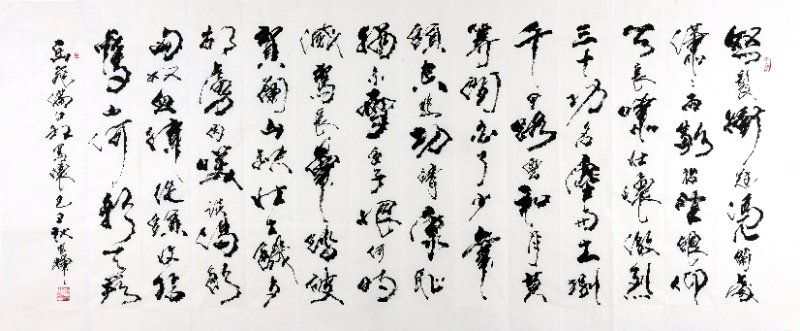 怒髮衝冠憑闌處
瀟瀟雨歇抬望眼仰
天長嘯壯懷激烈
三十功名塵與土八
千里路雲和月莫
等閑白了少年
頭空悲切靖康恥
猶未雪臣子恨何時
滅駕長車踏破
賀蘭山缺壯士饑餐
胡虜肉笑談渴飲
匈奴血待從頭收拾
舊山河朝天闕
岳飛滿江紅寫懷 丑秋